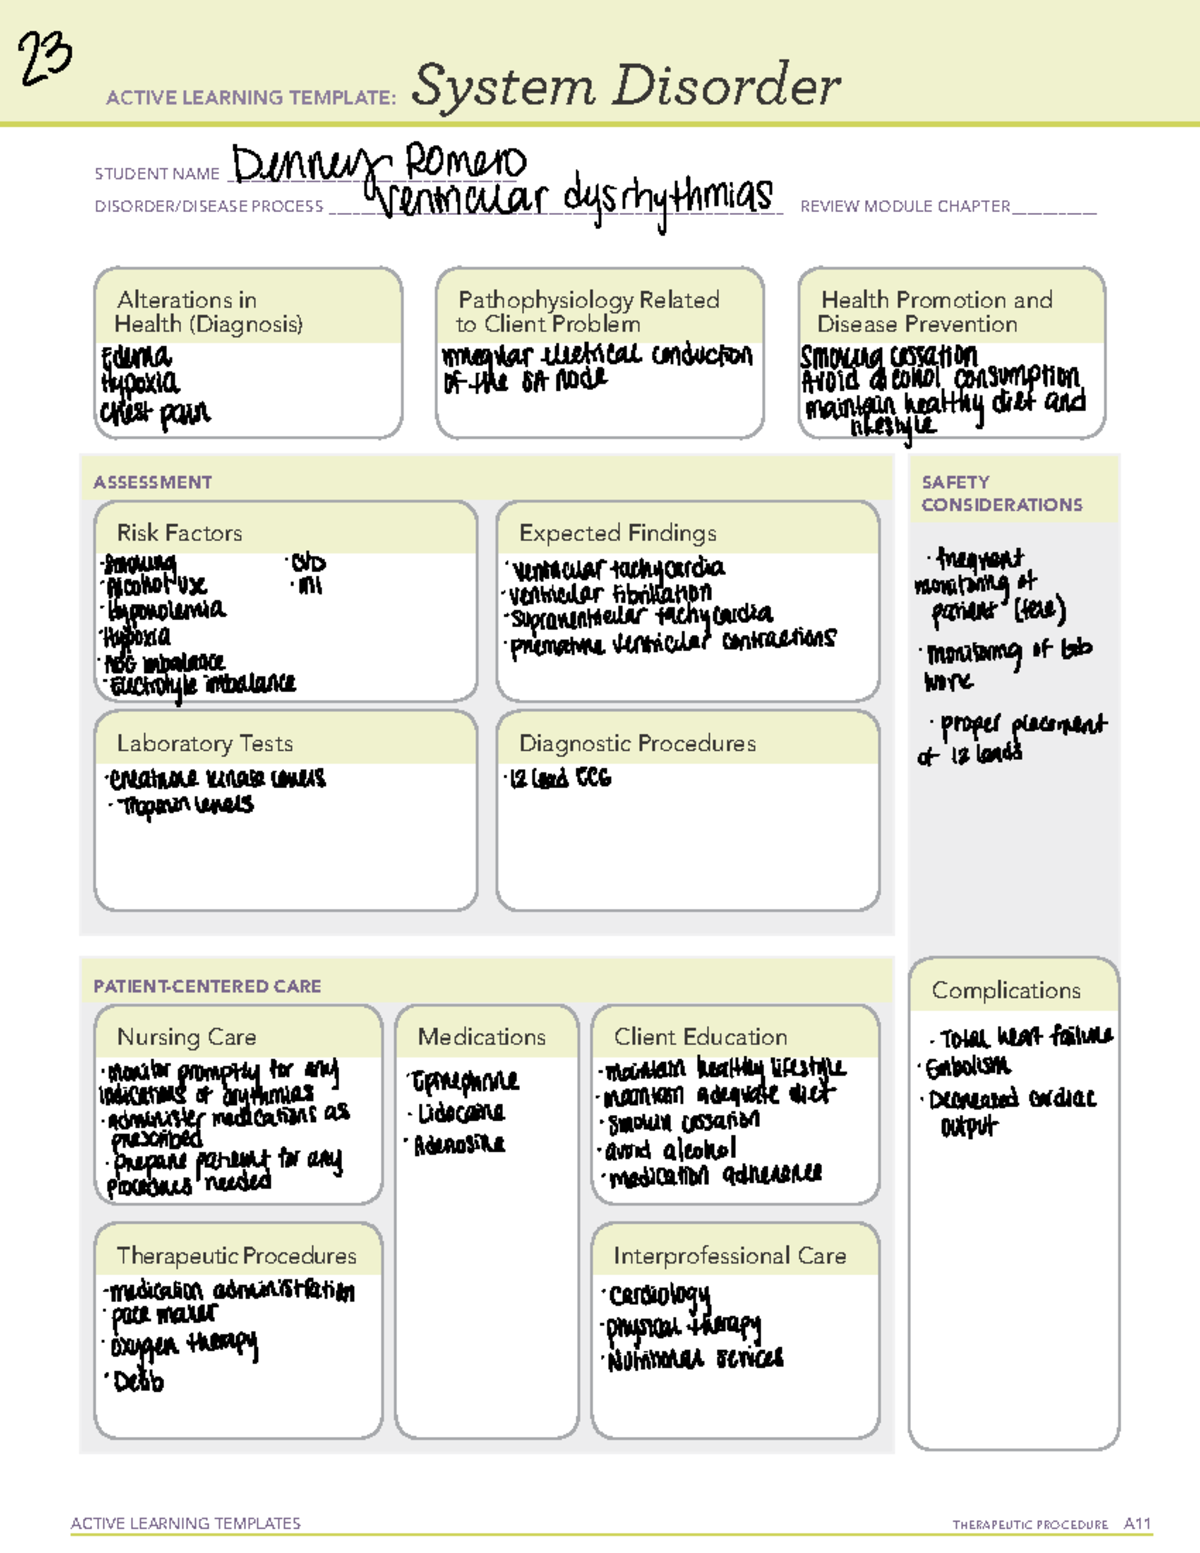 23
ACTIVE LEARNING TEMPLATE: System Disorder
STUDENT NAME Denney Romero
DISORDER/DISEASE PROCESS Ventricular dysrhythmias REVIEW MODULE CHAPTER
Alterations in
Health (Diagnosis)
Edema
Hypoxia
Chest pain
Pathophysiology Related
to Client Problem
irregular electrical conduction
of the SA node
Health Promotion and
Disease Prevention
Smoking cessation
Avoid alcohol consumption
maintain healthy diet and
lifestyle
ASSESSMENT
Risk Factors
· Smoking
· Alcohol use
· Hypovolemia
· Hypoxia
· ABG imbalance
· Electrolyte imbalance
· CVD
· MI
Expected Findings
· ventricular tachycardia
· ventricular fibrillation
· Supraventricular tachycardia
· premature ventricular contractions
Laboratory Tests
· creatinine kinase levels
· Troponin levels
Diagnostic Procedures
· 12 lead ECG
SAFETY
CONSIDERATIONS
· frequent
monitoring of
patient (tele)
· monitoring of lab
work
· proper placement
of 12 leads
PATIENT-CENTERED CARE
Nursing Care
· monitor promptly for any
indications of arythmias
· administer medications as
prescribed
· prepare patient for any
procedures needed
Medications
· Epinephrine
· Lidocaine
· Adenosine
Client Education
· maintain healthy lifestyle
· maintain adequate diet
· smoking cessation
· avoid alcohol
· medication adherence
Therapeutic Procedures
- medication administration
· pace maker
· oxygen therapy
· Defib
Interprofessional Care
· Cardiology
· physical therapy
· Nutritional services
Complications
· Total heart failure
· Embolism
· Decreated cardiac
output
ACTIVE LEARNING TEMPLATES
THERAPEUTIC PROCEDURE A11